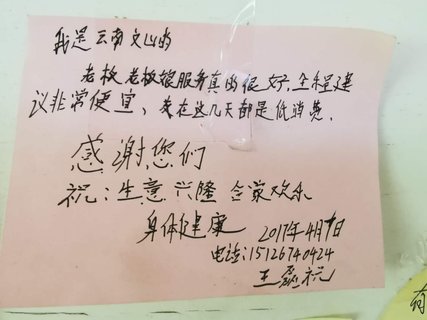 我是云南文山的
老板老板娘服务真的很好,全程建
议非常便宜、我在这几天都是低消费.
感谢您们
祝:生意兴隆 合家欢乐
身体健康 2017年4月1日
电话:15126740424
王
有